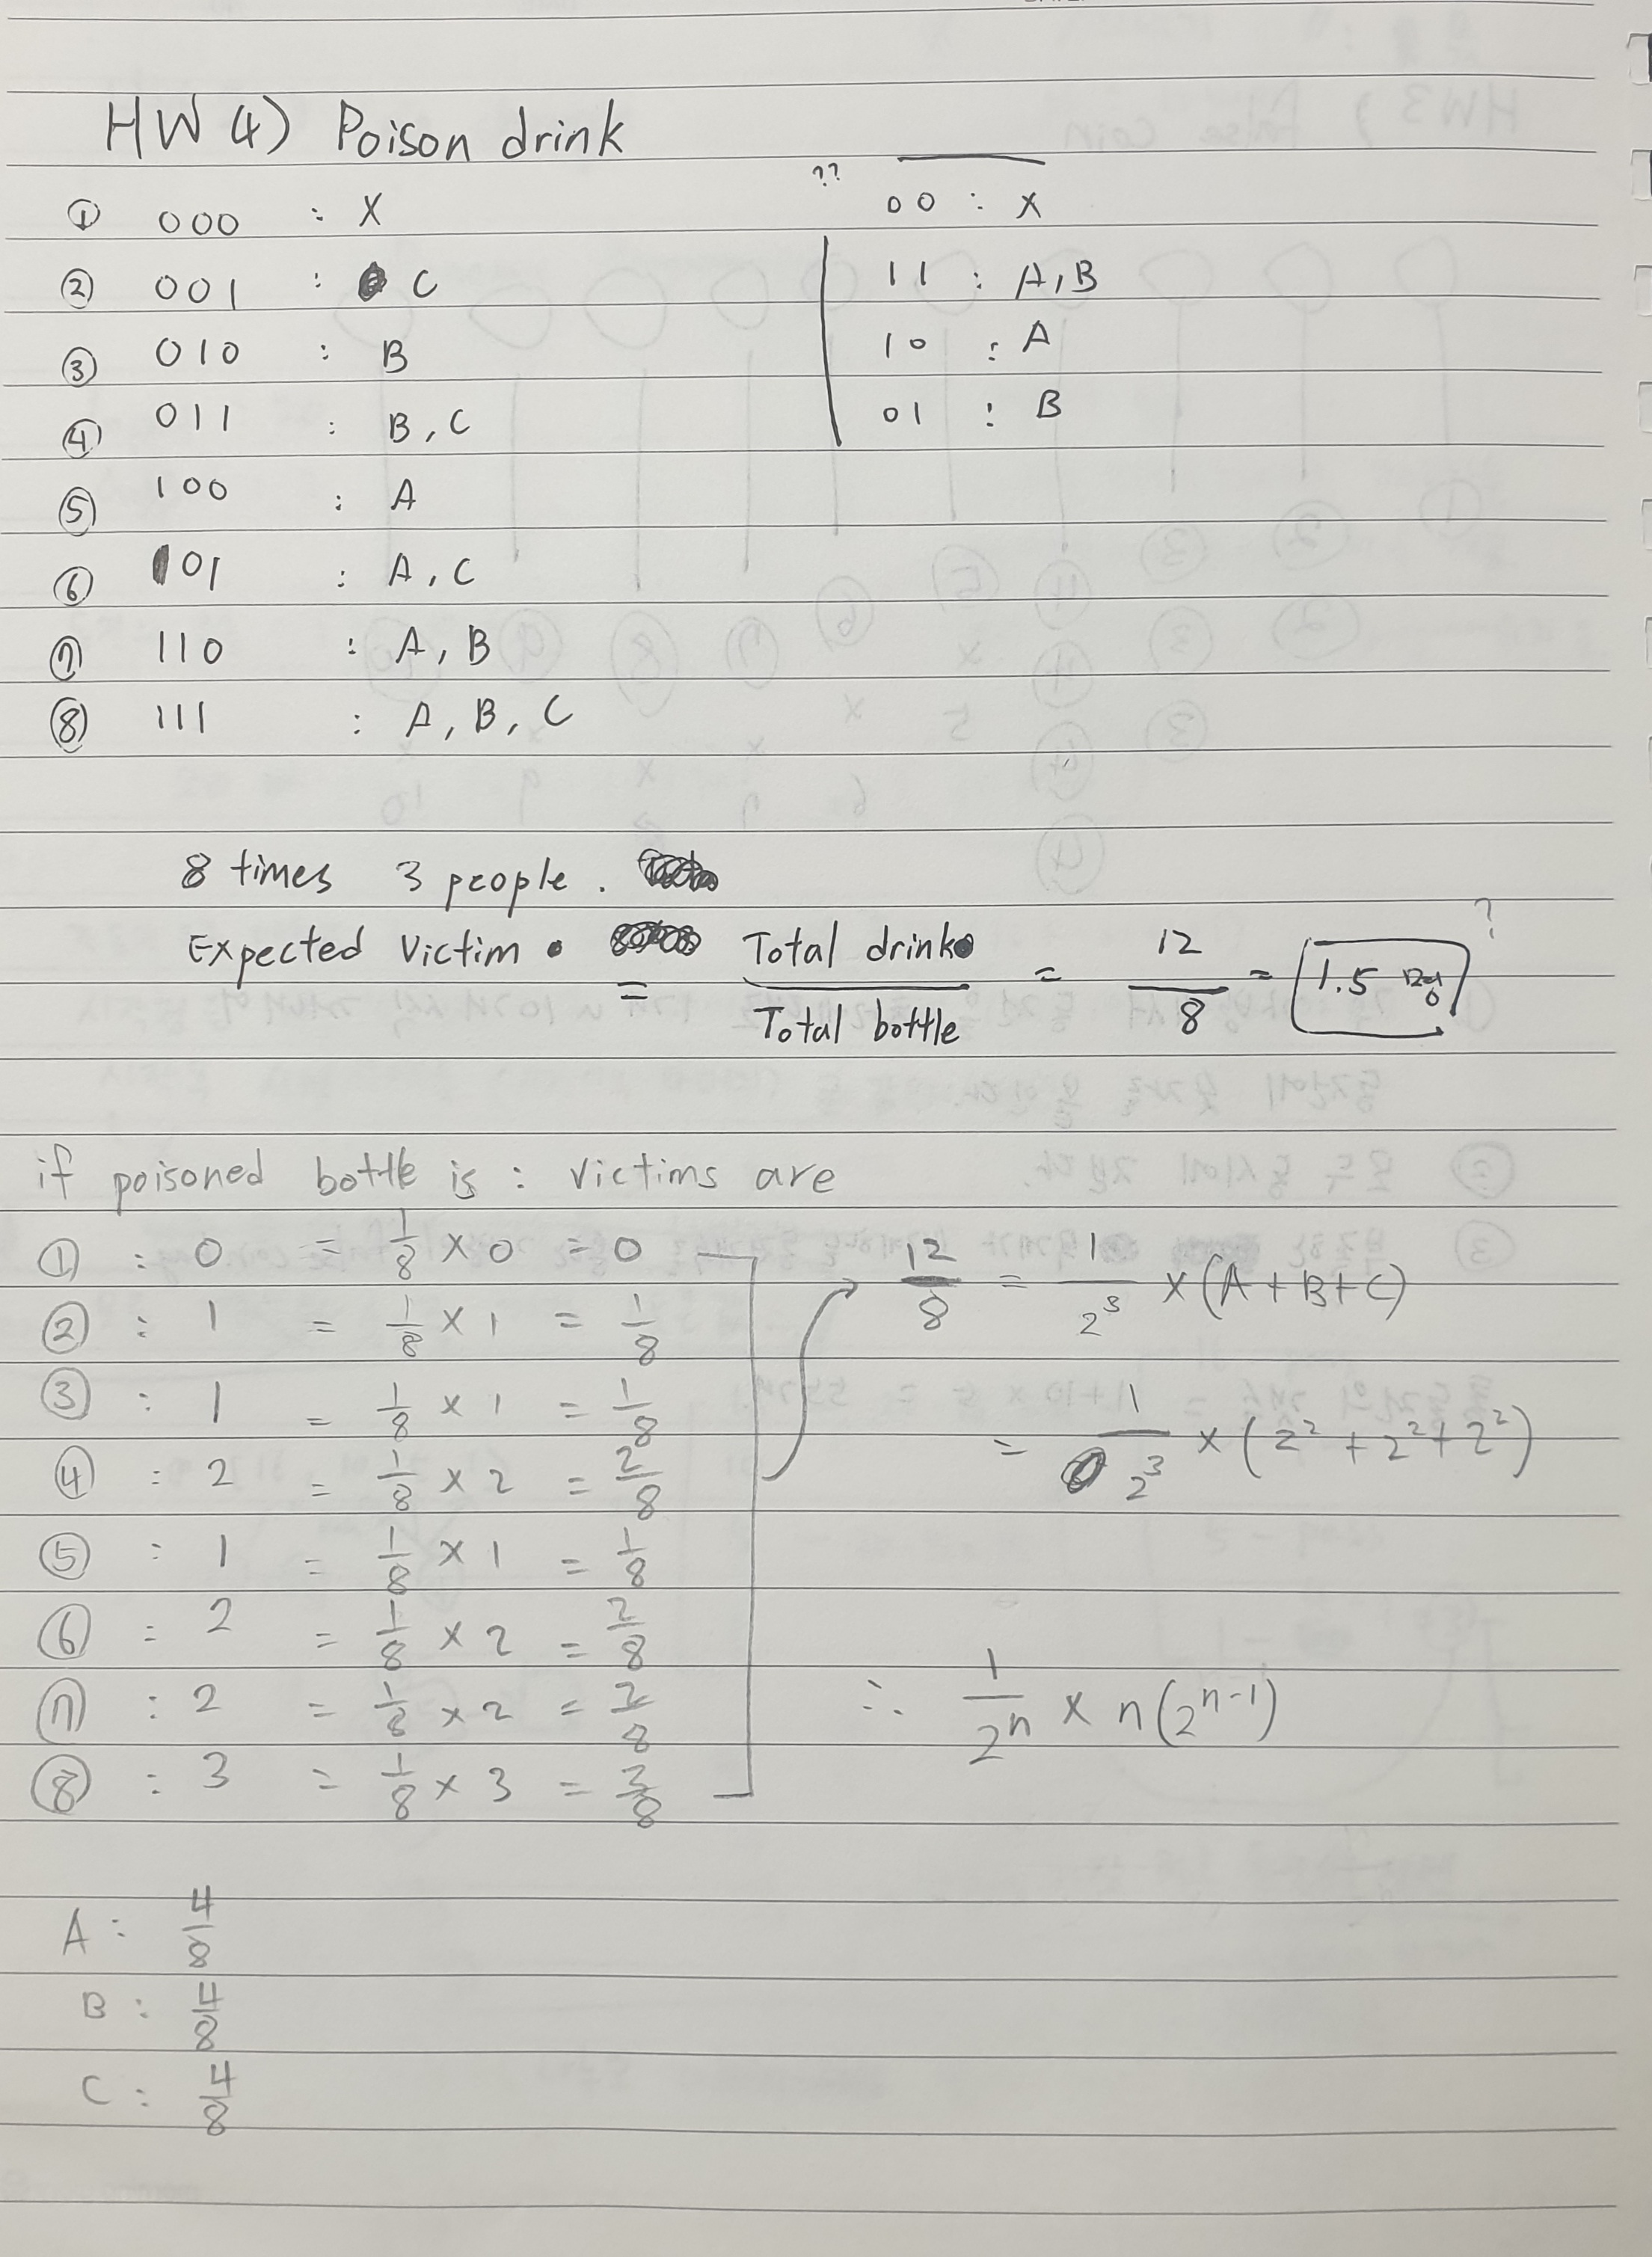 HW 4) Poison drink
① 000 : X
② 001 : C
③ 010 : B
④ 011 : B, C
⑤ 100 : A
⑥ 101 : A, C
⑦ 110 : A, B
⑧ 111 : A, B, C
??
00 : X
11 : A, B
10 : A
01 : B
8 times 3 people.
Expected victim = Total drink / Total bottle = 12/8 = 1.5 ?
if poisoned bottle is : victims are
① : 0 = 1/8 × 0 = 0
② : 1 = 1/8 × 1 = 1/8
③ : 1 = 1/8 × 1 = 1/8
④ : 2 = 1/8 × 2 = 2/8
⑤ : 1 = 1/8 × 1 = 1/8
⑥ : 2 = 1/8 × 2 = 2/8
⑦ : 2 = 1/8 × 2 = 2/8
⑧ : 3 = 1/8 × 3 = 3/8
12/8 = 1/2³ × (A + B + C)
= 1/2³ × (2² + 2² + 2²)
∴ 1/2ⁿ × n(2ⁿ⁻¹)
A : 4/8
B : 4/8
C : 4/8